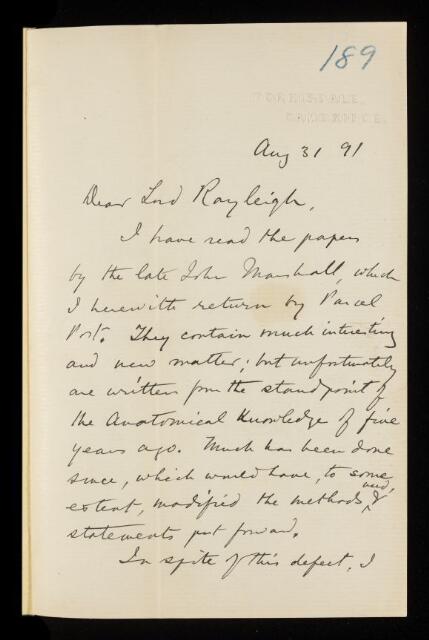 189
TORRISDALE,
CAMBRIDGE.
Aug 31 91
Dear Lord Rayleigh,
I have read the papers
by the late John Marshall, which
I herewith return by Parcel
Post. They contain much interesting
and new matter; but unfortunately
are written from the standpoint of
the Anatomical Knowledge of five
years ago. Much has been done
since, which would have, to some
extent, modified the methods used, &
statements put forward.
In spite of this defect, I